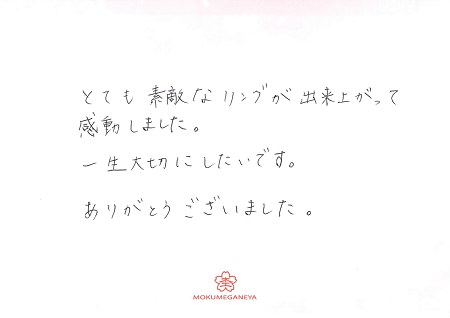 とても素敵なリングが出来上がって
感動しました。
一生大切にしたいです。
ありがとうございました。
MOKUMEGANEYA